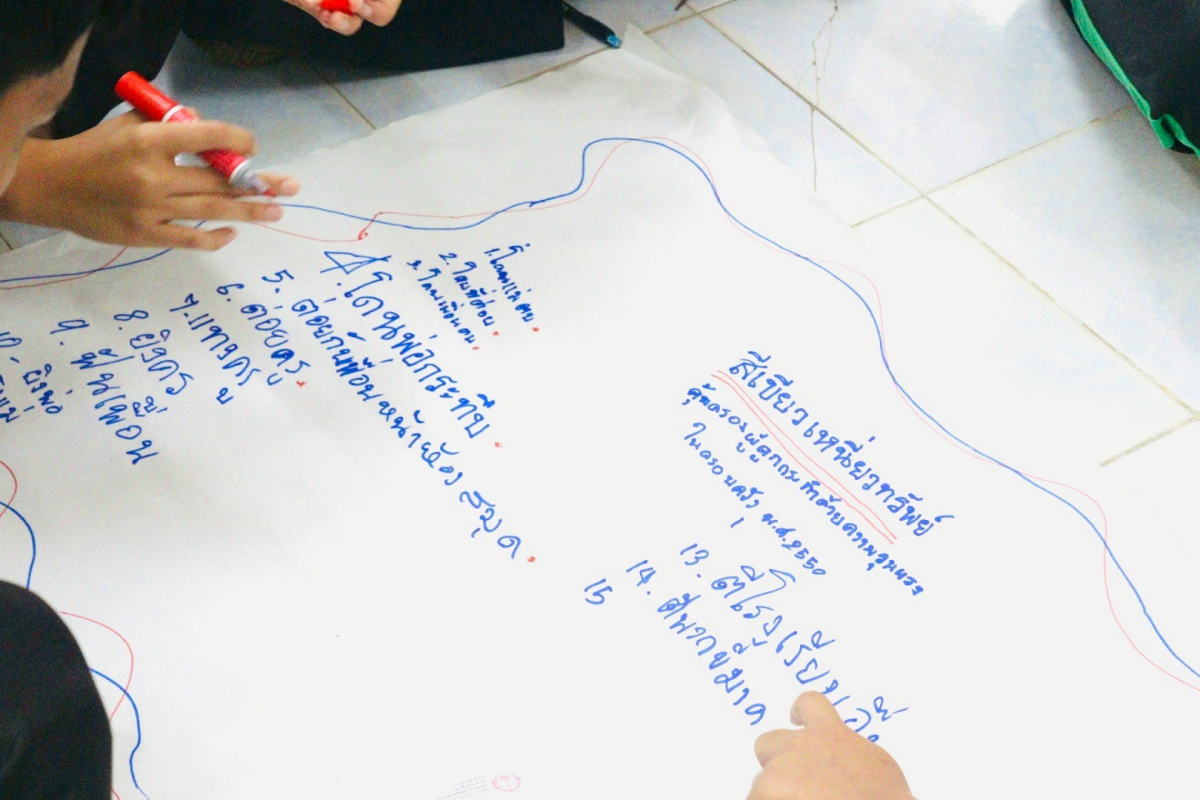 1. โดนแม่ตบ
2. โดนพี่ต่อย
3. โดนเพื่อนตบ
4. โดนพ่อกระทืบ
5. ต่อยกับเพื่อนหน้าห้องสมุด
6. ต่อยครู
7. แทงครู
8. ยิงครู
9. ฟันเพื่อน
10 - ยิงพ่อ
แม่
สีเขียวเหนี่ยวทรัพย์
คุ้มครองผู้ถูกกระทำด้วยความรุนแรง
ในครอบครัว พ.ศ.2550
13. ตีโรงเรียนอื่น
14. ตีพวกขี้
15